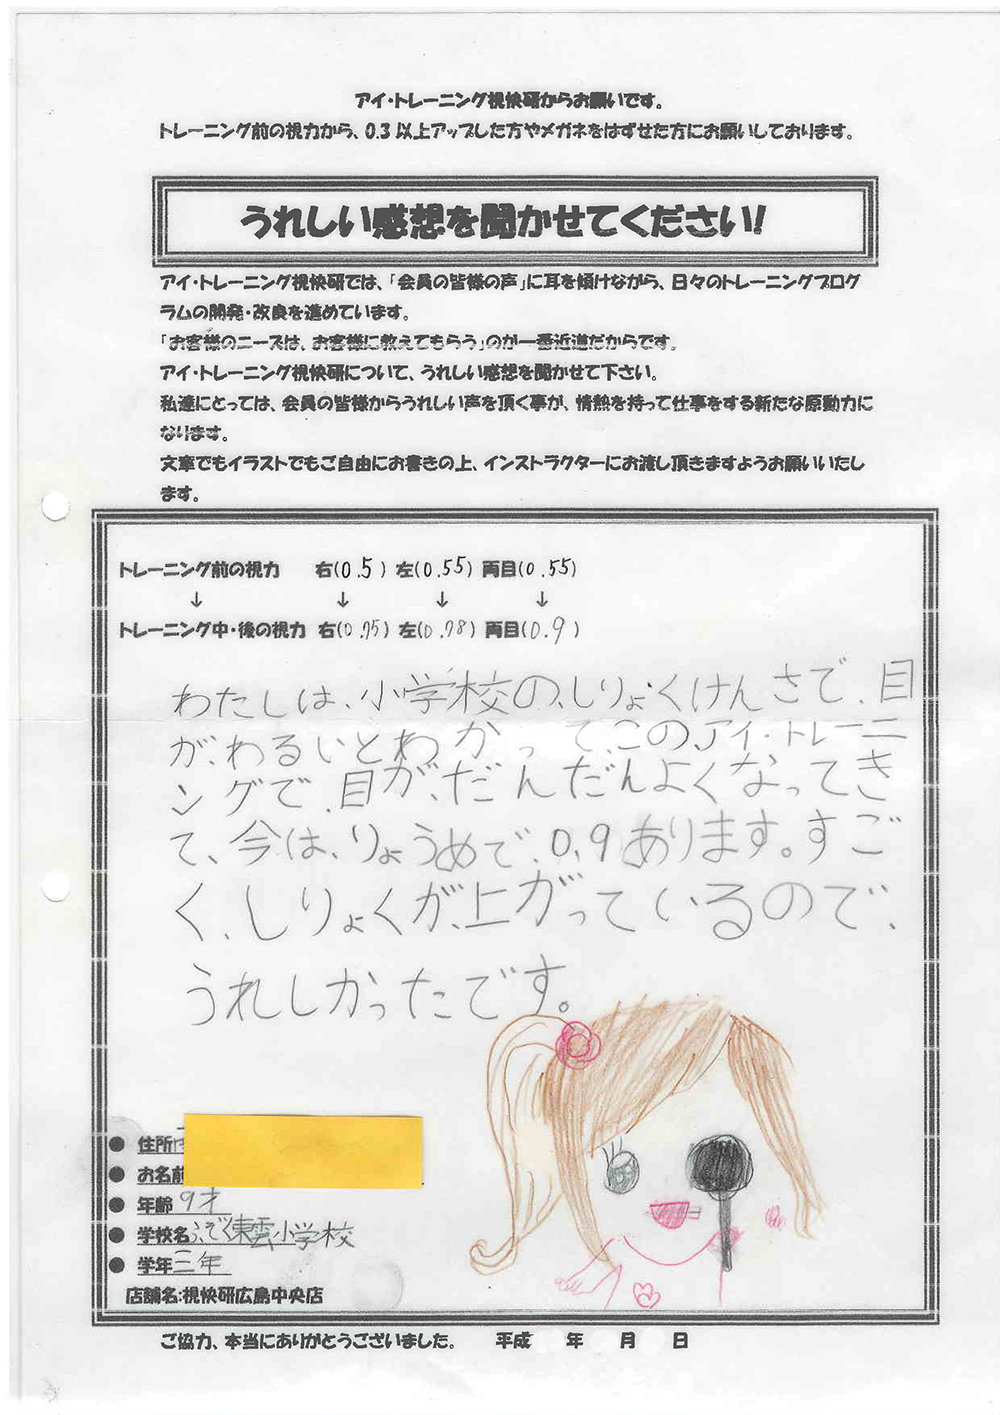 アイ・トレーニング視快研からお願いです。
トレーニング前の視力から、0.3以上アップした方やメガネをはずせた方にお願いしております。
うれしい感想を聞かせてください!
アイ・トレーニング視快研では、「会員の皆様の声」に耳を傾けながら、日々のトレーニングプログ
ラムの開発・改良を進めています。
「お客様のニーズは、お客様に教えてもらう」のが一番近道だからです。
アイ・トレーニング視快研について、うれしい感想を聞かせて下さい。
私達にとっては、会員の皆様からうれしい声を頂く事が、情熱を持って仕事をする新たな原動力に
なります。
文章でもイラストでもご自由にお書きの上、インストラクターにお渡し頂きますようお願いいたし
ます。
トレーニング前の視力 右(0.5) 左(0.55) 両目(0.55)
↓ ↓ ↓ ↓
トレーニング中・後の視力 右(0.75) 左(0.78) 両目(0.9)
わたしは、小学校の、しりょくけんさで、目
が、わるいとわかって、この、アイ・トレーニ
ングで、目が、だんだんよくなってき
て、今は、りょうめで、0.9あります。すご
く、しりょくが、上がっているので、
うれしかったです。
● 住所
● お名前
● 年齢 9才
● 学校名 ふぞく東雲小学校
● 学年 三年
店舗名:視快研広島中央店
ご協力、本当にありがとうございました。 平成 年 月 日